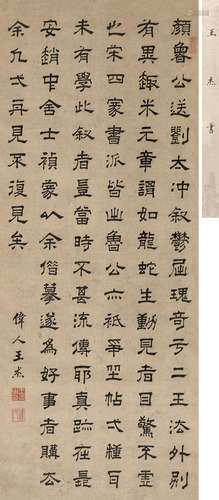 王杰書
顏魯公送劉太沖敘鬱屈瑰奇亏二王法外別
有異趣米元章謂如龍蛇生動見者目驚不虛
也宋四家書派皆出魯公亦祇爭坐帖弌種耳
未有學此敘者豈當時不甚流傳耶真跡在長
安趙中舍士禎家以余借摹遂為好事者購去
余凡弌再見不復見矣
偉人王杰